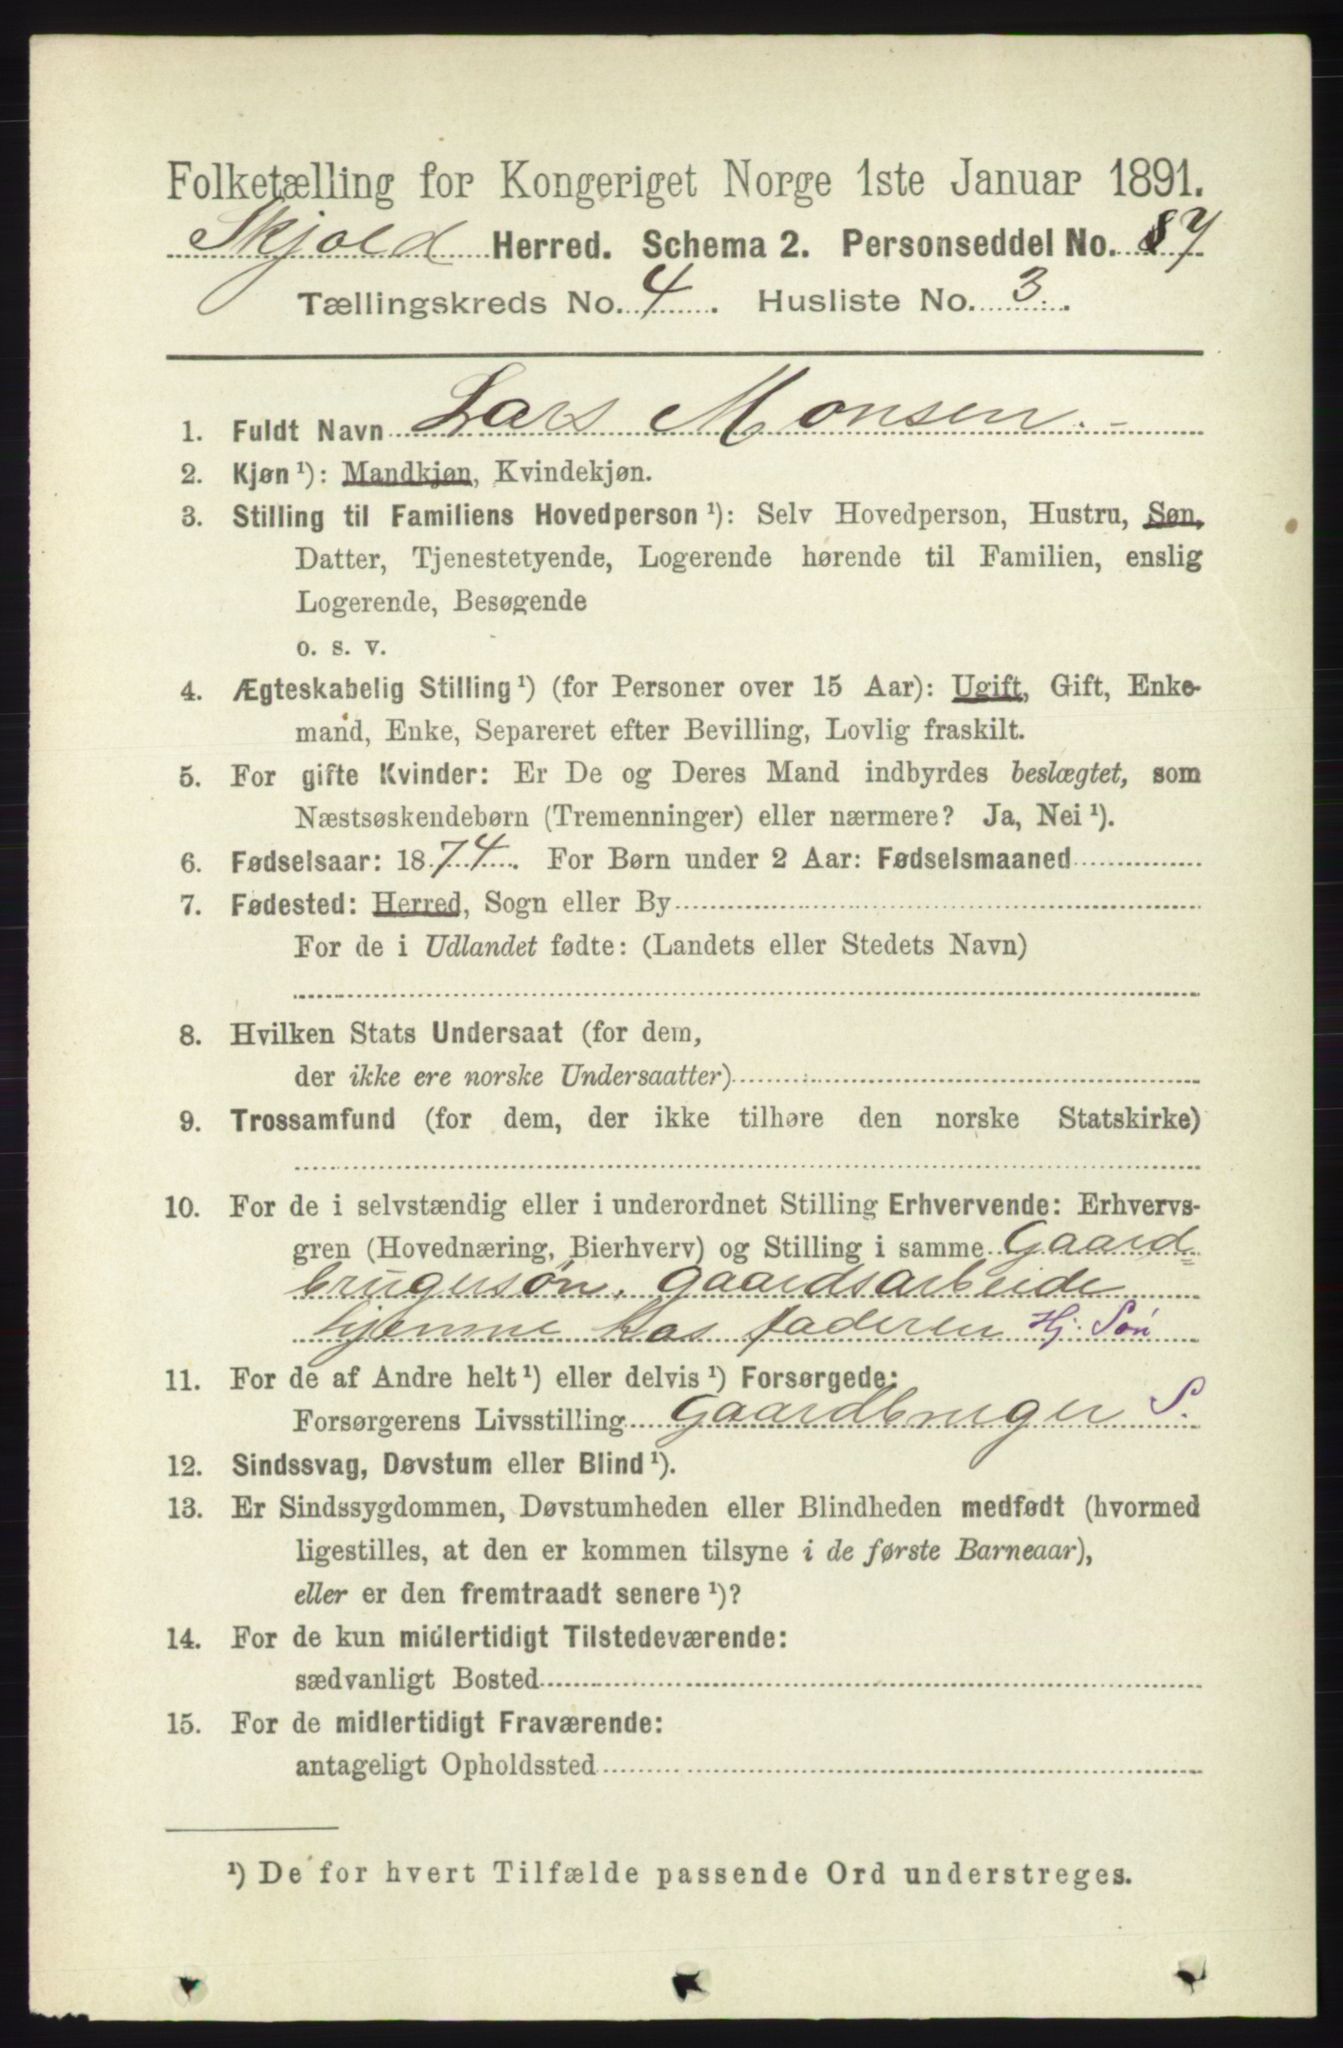 Folketælling for Kongeriget Norge 1ste Januar 1891.
Skjold Herred. Schema 2. Personseddel No. 87
Tællingskreds No. 4. Husliste No. 3.
1. Fuldt Navn Lars Monsen.
2. Kjøn ¹): Mandkjøn, Kvindekjøn.
3. Stilling til Familiens Hovedperson ¹): Selv Hovedperson, Hustru, Søn,
Datter, Tjenestetyende, Logerende hørende til Familien, enslig
Logerende, Besøgende
o. s. v.
4. Ægteskabelig Stilling ¹) (for Personer over 15 Aar): Ugift, Gift, Enke-
mand, Enke, Separeret efter Bevilling, Lovlig fraskilt.
5. For gifte Kvinder: Er De og Deres Mand indbyrdes beslægtet, som
Næstsøskendebørn (Tremenninger) eller nærmere? Ja, Nei ¹).
6. Fødselsaar: 1874. For Børn under 2 Aar: Fødselsmaaned
7. Fødested: Herred, Sogn eller By
For de i Udlandet fødte: (Landets eller Stedets Navn)
8. Hvilken Stats Undersaat (for dem,
der ikke ere norske Undersaatter)
9. Trossamfund (for dem, der ikke tilhøre den norske Statskirke)
10. For de i selvstændig eller i underordnet Stilling Erhvervende: Erhvervs-
gren (Hovednæring, Bierhverv) og Stilling i samme Gaard=
brugersøn. Gaardsarbeide
hjemme hos faderen Hj. Søn
11. For de af Andre helt ¹) eller delvis ¹) Forsørgede:
Forsørgerens Livsstilling Gaardbruger S.
12. Sindssvag, Døvstum eller Blind ¹).
13. Er Sindssygdommen, Døvstumheden eller Blindheden medfødt (hvormed
ligestilles, at den er kommen tilsyne i de første Barneaar),
eller er den fremtraadt senere ¹)?
14. For de kun midlertidigt Tilstedeværende:
sædvanligt Bosted
15. For de midlertidigt Fraværende:
antageligt Opholdssted
¹) De for hvert Tilfælde passende Ord understreges.